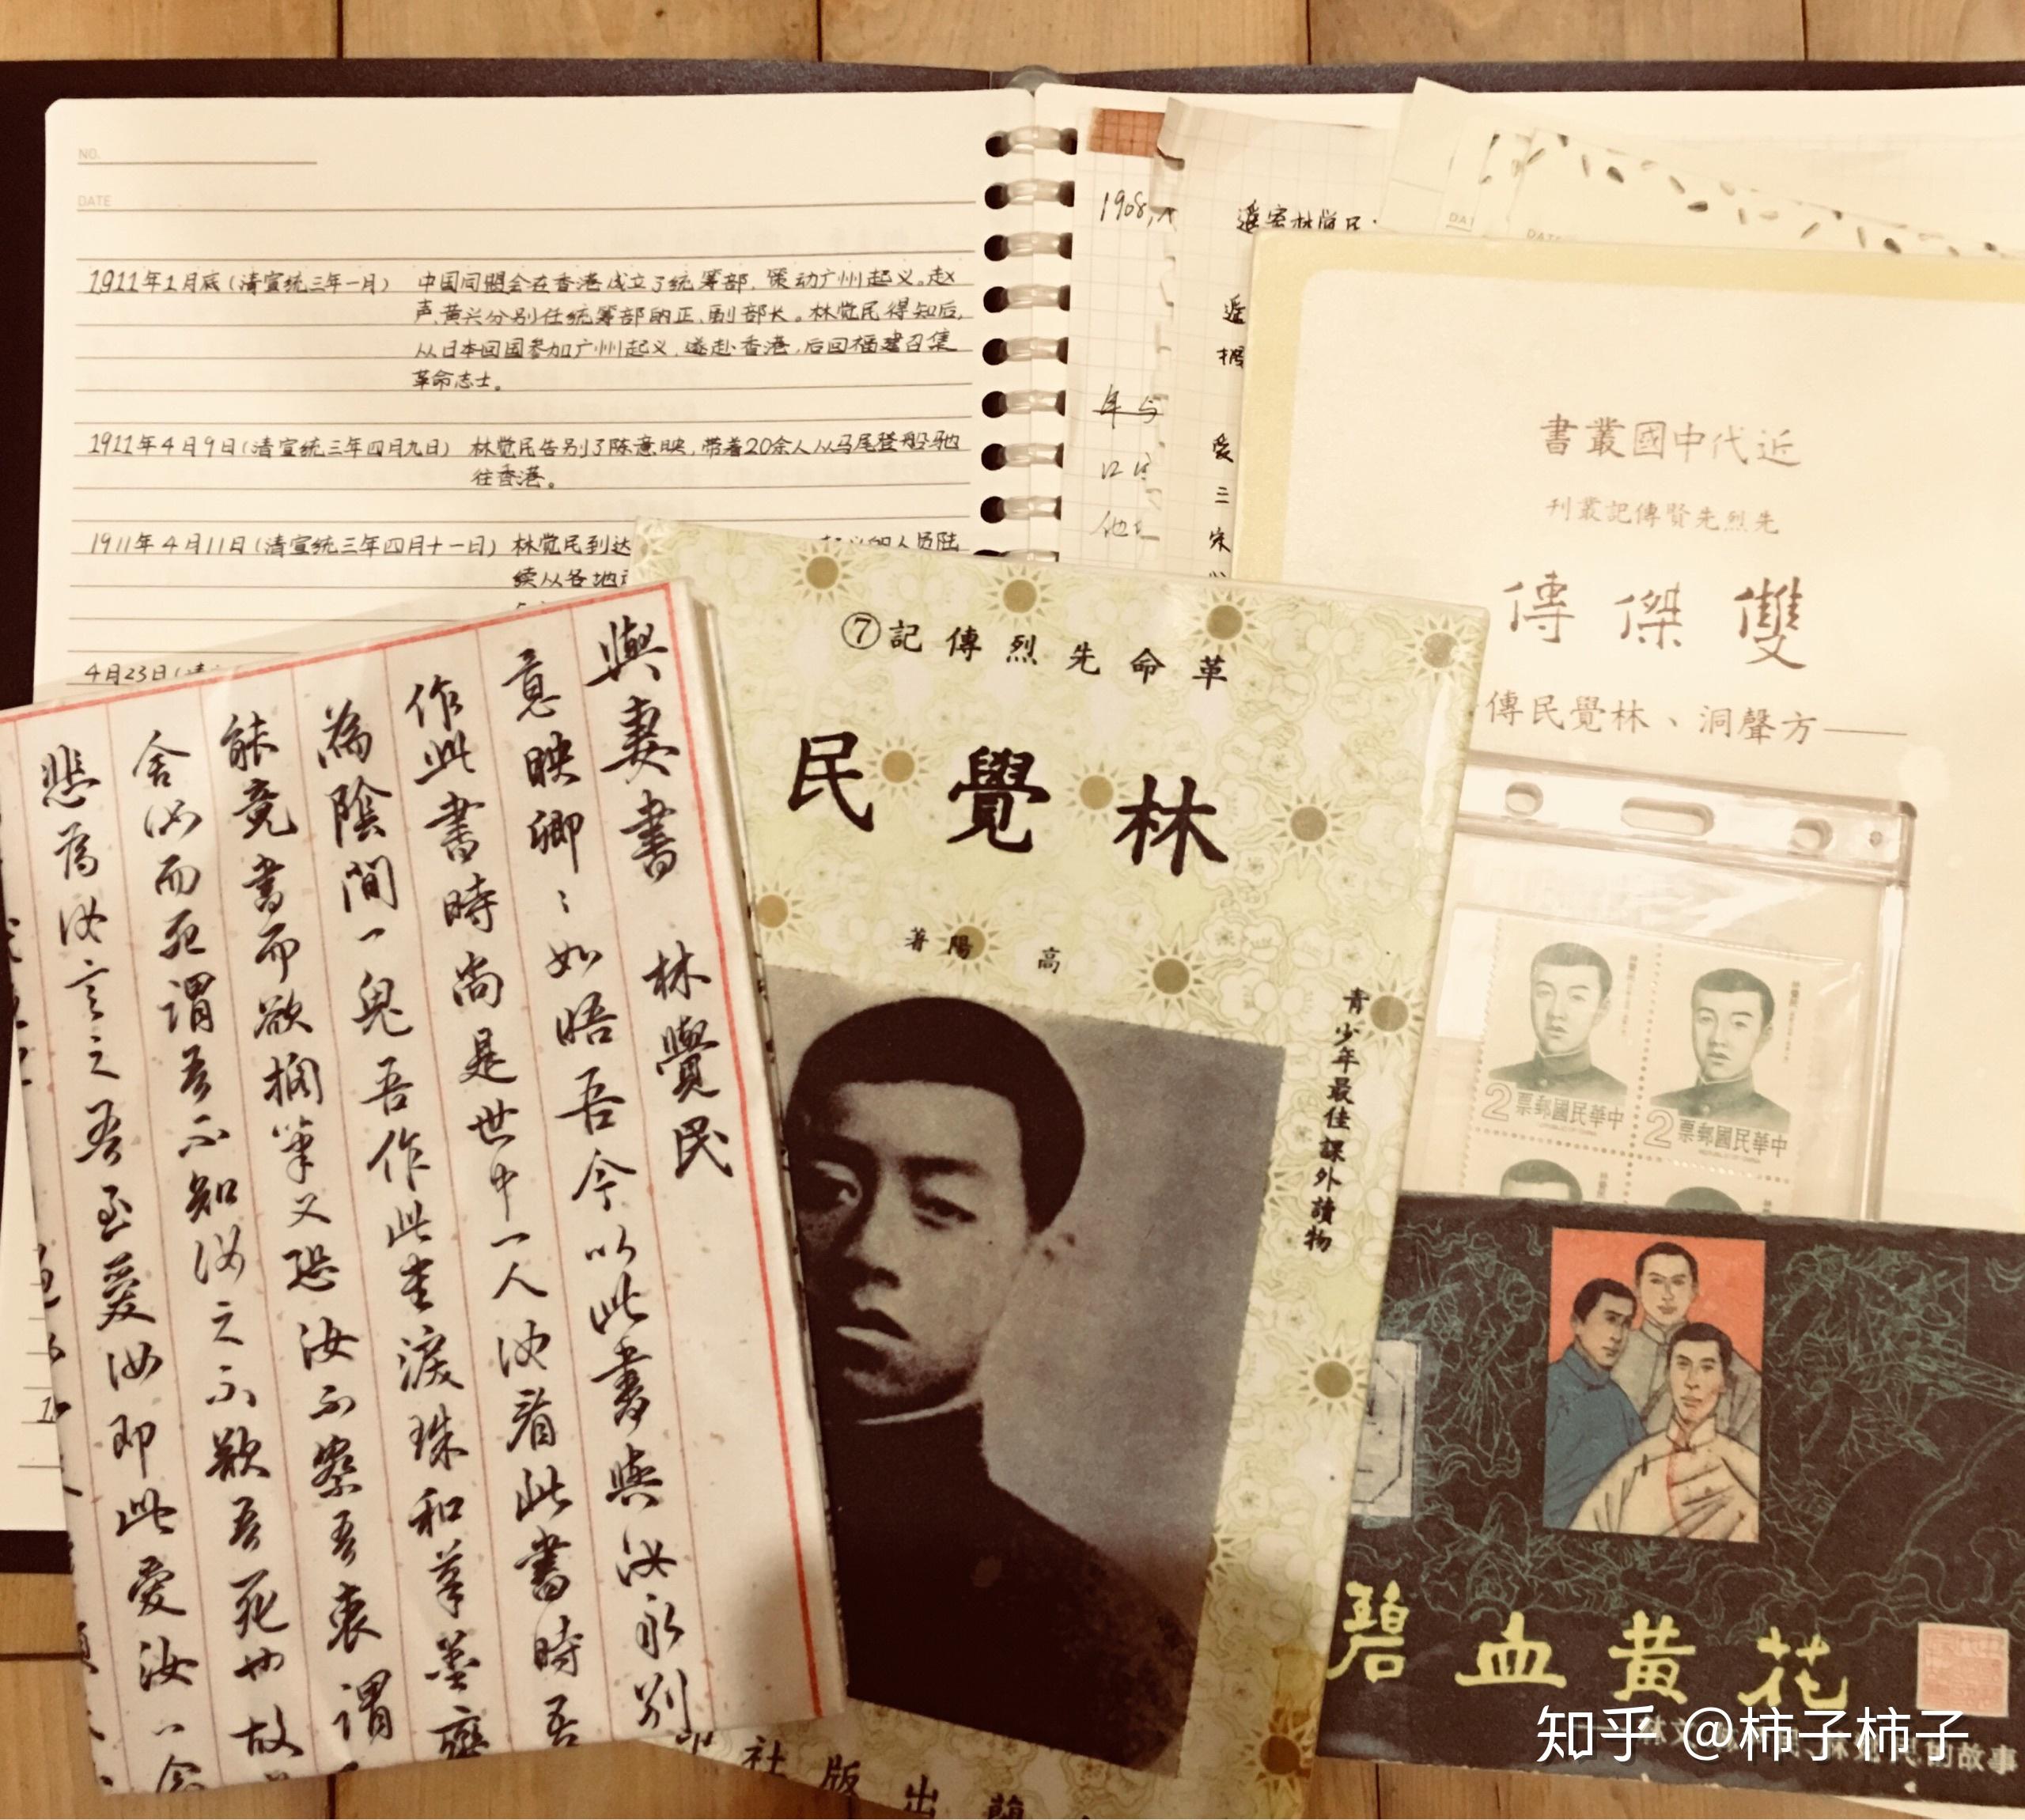 NO.
DATE
1911年1月底(清宣统三年一月) 中国同盟会在香港成立了统筹部,策动广州起义。赵
声、黄兴分别任统筹部的正、副部长。林觉民得知后,
从日本回国参加广州起义,遂赴香港,后回福建召集
革命志士。
1911年4月9日(清宣统三年四月九日) 林觉民告别了陈意映,带着20余人从马尾登船驰
往香港。
1911年4月11日(清宣统三年四月十一日) 林觉民到达
人员陆
续从各地
4月23日(
1908,
年与
他
遥寄林觉民:
遥
据
爱
二
宋
近代中國叢書
先烈先賢傳記叢刊
雙傑傳
——方聲洞、林覺民傳
革命先烈傳記⑦
林覺民
高陽著
青少年最佳課外讀物
出版社
與妻書 林覺民
意映卿〻如晤吾今以此書與汝永別
作此書時尚是世中一人汝看此書時吾
為陰間一鬼吾作此書淚珠和筆墨齊
能竟書而欲擱筆又恐汝不察吾衷謂
舍汝而死謂吾不知汝之不欲吾死也故
悲為汝言之吾至愛汝即此愛汝一念
中華民國郵票 2
中華民國郵票 2
碧血黃花
知乎 @柿子柿子